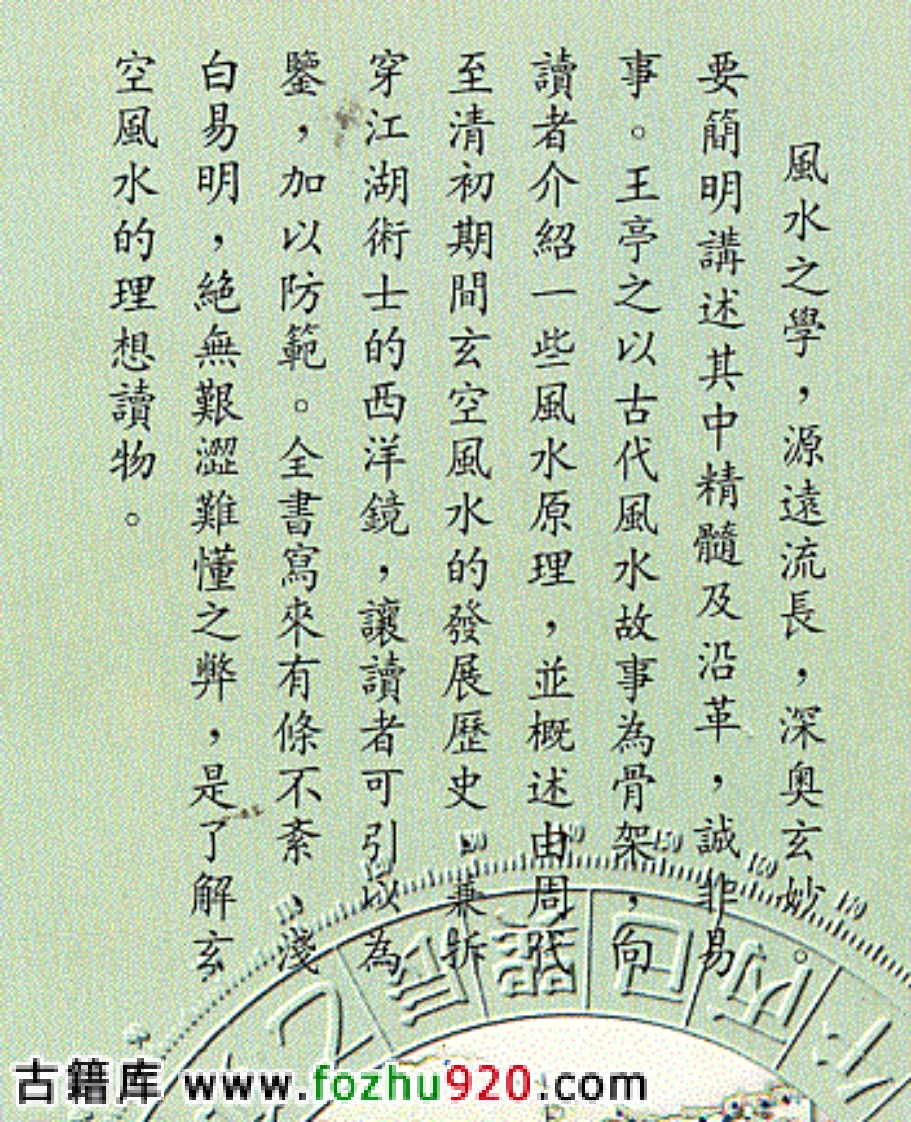 風水之學，源遠流長，深奥玄妙。
要簡明講述其中精髓及沿革，誠非易
事。王亭之以古代風水故事為骨架，向
讀者介紹一些風水原理，並概述由周代
至清初期間玄空風水的發展歷史，兼拆
穿江湖術士的西洋鏡，讓讀者可引以為
鑒，加以防範。全書寫來有條不紊，淺
白易明，絕無艱澀難懂之弊，是了解玄
空風水的理想讀物。
150
160
170
丙
巳
巽
辰
乙
古籍库 www.fozhu920.com